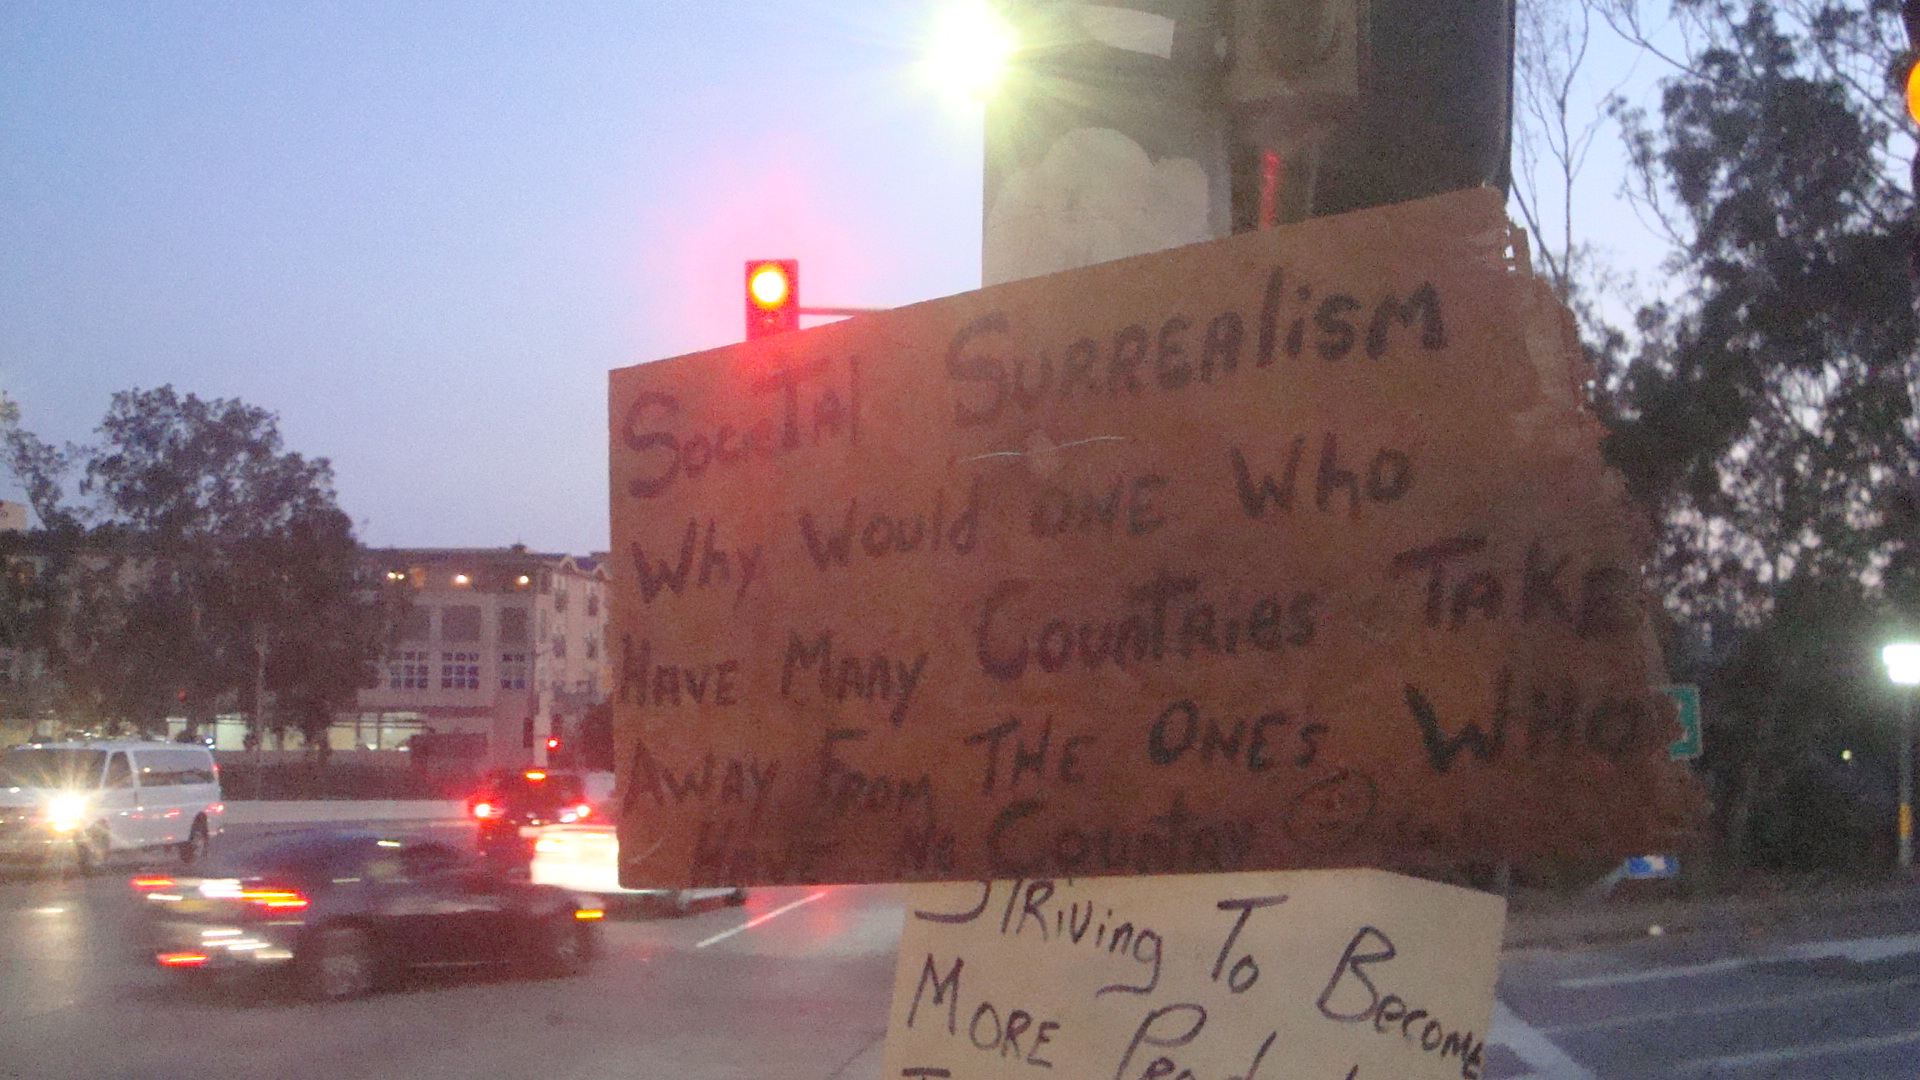 SocieTal SURREAlisM
Why Would ONE Who
HAVE MANy CounTRies TAKE
AWAY FROM THE ONE'S WHO
HAVE No Country
STRiving To Become
MORE